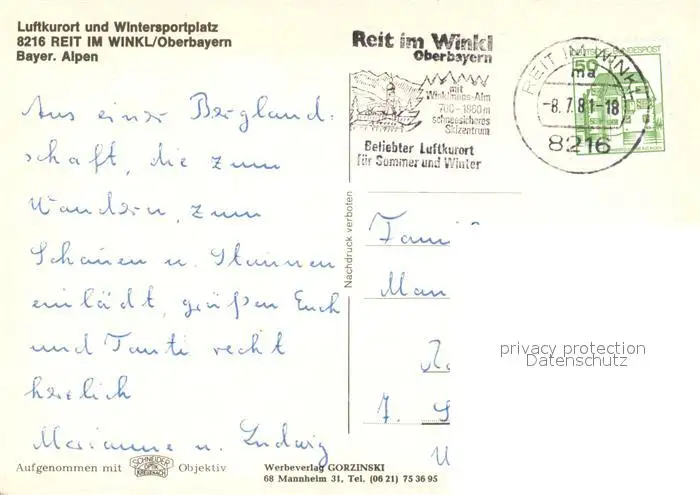 Luftkurort und Wintersportplatz
8216 REIT IM WINKL/Oberbayern
Bayer. Alpen
Reit im Winkl
Oberbayern
mit
Winklmoos-Alm
700-1860 m
schneesicheres
Skizentrum
Beliebter Luftkurort
für Sommer und Winter
REIT IM WINKL
ma
-8.7.81-18
8216
DEUTSCHE BUNDESPOST
50
Aus einer Bergland-
schaft, die zum
Wandern, zum
Schauen u. Staunen
einlädt, grüßen Euch
und Tanti recht
herzlich
Marianne u. Ludwig
Nachdruck verboten
Fami
Man
7.
privacy protection
Datenschutz
Aufgenommen mit SCHNEIDER OPTIK KREUZNACH Objektiv
Werbeverlag GORZINSKI
68 Mannheim 31, Tel. (06 21) 75 36 95